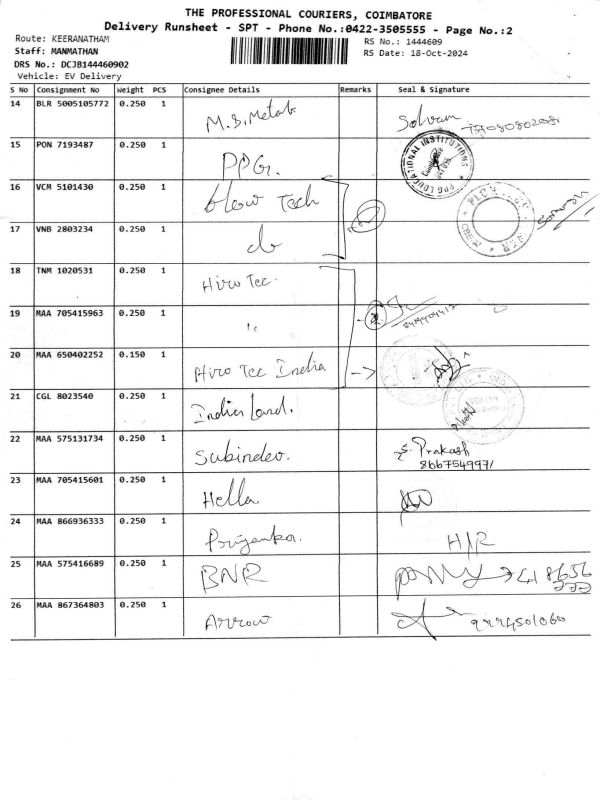 THE PROFESSIONAL COURIERS, COIMBATORE
Delivery Runsheet - SPT - Phone No.:0422-3505555 - Page No.:2
Route: KEERANATHAM
RS No.: 1444609
Staff: MANMATHAN
RS Date: 18-Oct-2024
DRS No.: DCJB144460902
Vehicle: EV Delivery
S No Consignment No Weight PCS Consignee Details Remarks Seal & Signature
14 BLR 5005105772 0.250 1 M.S. Metal
15 PON 7193487 0.250 1 PPG. PPG EDUCATIONAL INSTITUTIONS
16 VCM 5101430 0.250 1 Tech
17 VNB 2803234 0.250 1
18 TNM 1020531 0.250 1 Hiro Tec.
19 MAA 705415963 0.250 1 "
20 MAA 650402252 0.150 1 Hiro Tec India
21 CGL 8023540 0.250 1 India Land.
22 MAA 575131734 0.250 1 Subindev. S. Prakash
8667549971
23 MAA 705415601 0.250 1 Hella
24 MAA 866936333 0.250 1 Priyanka. HIR
25 MAA 575416689 0.250 1 BNR
26 MAA 867364803 0.250 1 Arrow